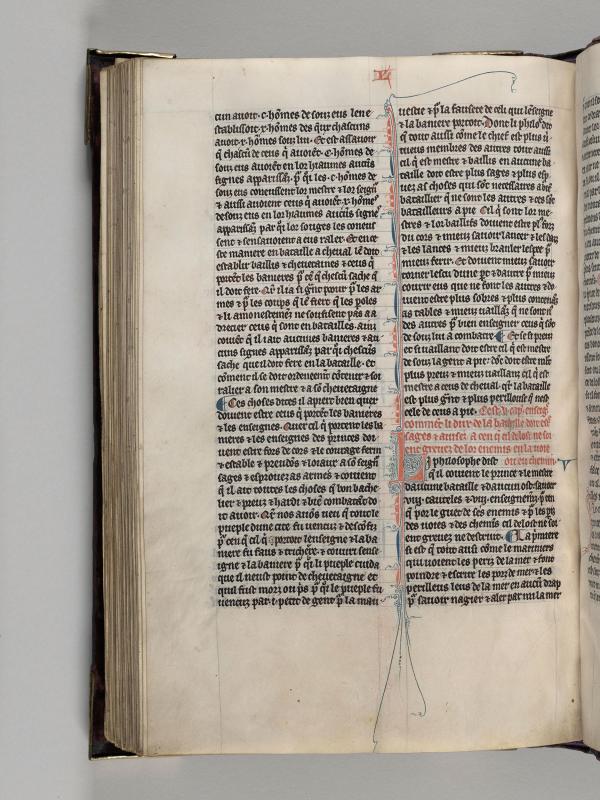 L
cun auoit .c. hōmes de souz eus len e
stablissoit .x. hōmes des q̄ux chascuns
auoit .x. hōmes souz lui. Et est assauoir
q̄ chascū de ceus q̄ auoiēt .c. hōmes de
souz eus auoiēt en lor hiaumes aucūs
signes apparissāz p̄ q̄i les .c. hōmes de
souz eus coneussent lor mestre & lor seign̄
& aussi auoient ceus q̄ auoiēt .x. hōmes
de souz eus en lor hiaumes aucūs signes
apparissāz par q̄i lor souges les coneus
sent & sen sauoient a eus raler. Et en ce
ste maniere en bataille a cheual lē doit
establir baillis & cheuetaines & ceus q̄
portēt les banieres p̄ ce q̄ chescū sache q̄
il doit fere.
mes & p̄ les coups q̄ lē fiert q̄ les poles
& li amonestemēz ne souffisent pas a a
drecier ceus q̄ sont en batailles. ainz
couiēt q̄ il i ait aucunes banieres & au
cuns signes apparissāz par q̄i chescūs
sache que il doit fere en la bataille. et
cōment il se doit ordeneemēt cōtenir & soi
ralier a son mestre & a sō cheuetaigne
¶ Ces choses dites il apiert bien quer
doiuent estre ceus q̄ portēt les banieres
& les enseignes. Quer cil q̄ portent les ba
nieres & les enseignes des princes doi
uent estre fors de cors & le courage ferm
& estable & preudōs & loiaux a sō seign̄
sages & esprouez as armes & couient
q̄ il ait toutes les choses q̄ bon bache
lier & preuz & hardi & biē combatāt do
it auoir. Q̄r nos auōs ueu q̄ tout le
pueple dune cite fu uencuz & descōfiz
p̄ ceu q̄ cil q̄ portoit lenseigne & la ba
niere fu faus & trichere. & couuri lense
igne & la baniere p̄ q̄i li pueple cuida
que il neust point de cheuetaigne et
quil fust morz ou p̄s p̄ q̄i le pueple fu
uencuz par .i. petit de gent p̄ la mau
uestie & p̄ la fausete de celi qui lēseigne
& la baniere portoit. Donc li philosōphe dit
q̄ tout aussi cōme le chief est plus &
mieus membres des autres tout aussi
cil q̄ est mestre & baillis en aucune ba
taille doit estre plus sages & plus esp̄
uez as choses qui sōt necessaires a bn̄
bataillier q̄ ne sont les autres & ces sōt
batailleurs a pie. Cil q̄ sont lor me
stres & lor baillifs doiuent estre pl̄ forz
du cors & mieuz sauoir lancier & les darz
& les lances & mieuz branler lespee p̄
mieuz ferir. Et doiuent mieuz sauoir
torner lescu dune p̄t & dautre p̄ mieuz
courir eus que ne font les autres & do
iuent estre plus sobres & plus contenāz
as tables & mieuz uaillāz q̄ ne sont n̄
des autres p̄ bien enseigner ceus q̄ sōt
de souz lui a combatre ¶ Et se si preuz
et si uaillanz doit estre cil q̄ est mestre
de souz la gent a pie: dōt doit estre mlt̄
plus preuz & mieuz uaillanz cil q̄ est
mestre a ceus de cheual. q̄r la bataille
est plus gn̄t & plus perillouse q̄ nest
celle de ceus a pie. Cest .v. cap. enseig
comment li duc de la bataille doit est̄
sages & auisez a ceu q̄ cil de lost ne soi
ent greuez de lor enemis en la uoie
Li philosophe dist ou eu chemin
q̄ il couient le prince & le mestre
daucune bataille & daucun ost sauoir
.viij. cauteles & .viij. enseignemēz p̄ eu
q̄ por le guet de ses enemis & p̄ les pīz
des uoies & des chemīs cil de lost ne soi
ent greuez ne destruit. ¶ La p̄miere
si est q̄ tout ausi cōme le mariniers
qui uoient les periz de la mer & font
poindre & escrire les porz de mer & les
perilleus leus de la mer en aucū drap
p̄ sauoir nagier & aler par mi la mer